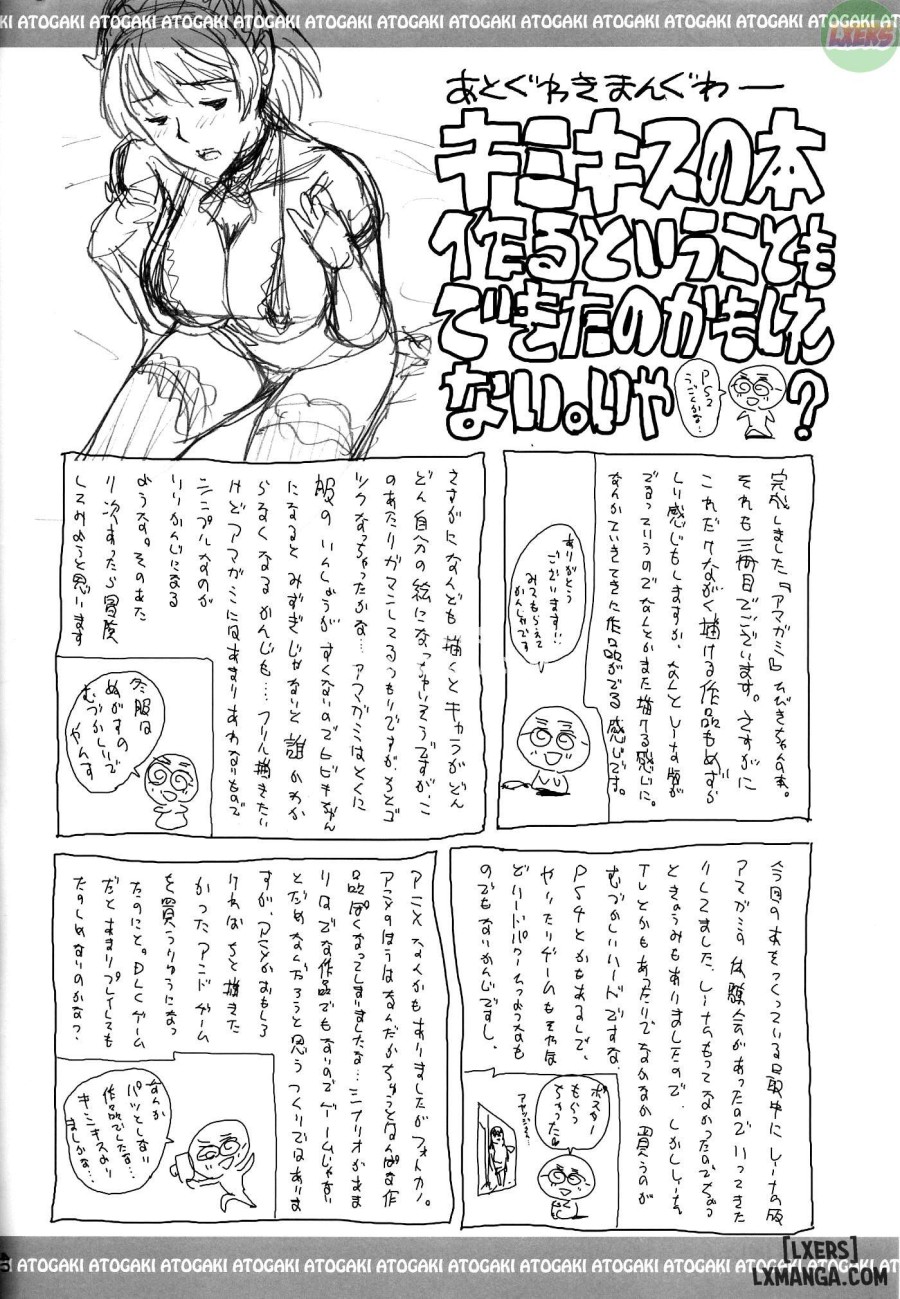 ATOGAKI ATOGAKI ATOGAKI ATOGAKI ATOGAKI ATOGAKI ATOGAKI ATOGAKI
LXERS
あとぐゎきまんぐゎー
キミキスの本
作るということも
できたのかもしれ
ない。いや?
PS2
うごくかな…
完成しました『アマガミ』ひびきちゃんの本。
それも三冊目でございます。さすがに
これだけながく描ける作品もめずら
しい感じもしますが、なんと
でるっていうのでなんとかまた描ける感じに。
なんかていきてきた作品がでる感じです。
ありがとう
ございます!!
みてもらえて
かんしゃです
さすがになんども描くとキャラがどん
どん自分の絵になっちゃいそうですが、こ
のあたりガマンしてるつもりですが、ちとゴ
ツクなっちゃったかな…アマガミはとくに
服のいしょうがすくないのでヒビキちゃん
になるとみずぎじゃないと誰かわか
らなくなるかんじも…フリル描きたい
けどアマガミにはあまりあわないもので
シンプルなのが
いいかんじになる
ような。そのあた
り次あったら冒険
してみようと思います
冬服は
ぬがすの
むづかしいで
やんす
今回のあそつくっている最中に
アマガミの体験会があったのでいってきた
りしてました、
ときょうみもありましたので、しかし
TLとかもあったりでなかなか買うのが
むづかしいハードですな
PS4とかもあるしで、
やりたいゲームもそやほ
どハードパワーつかうような
のでもないかんじですし。
ポスター
もらっ
ちゃったw
アニメなんかもありましたがフォトカノ。
アニメのほうはなんだかちょっとなんぱな作
品ぽくなってしまいましたな…シナリオがあま
りはでな作品でもないのでゲームじゃない
とだめなんだろうと思うつくりではありま
すが、アニメがおもしろ
ければちと描きた
かったアンドゲーム
を買うつもりになっ
たのにと。DLCゲーム
だとあまりプレイしても
たのしめないのかな?
なんか
パッとしない
作品でしたな…
キミキスより
ましかな…
ATOGAKI ATOGAKI ATOGAKI ATOGAKI ATOGAKI ATOGAKI ATOGAKI ATOGAKI
[LXERS]
LXMANGA.COM